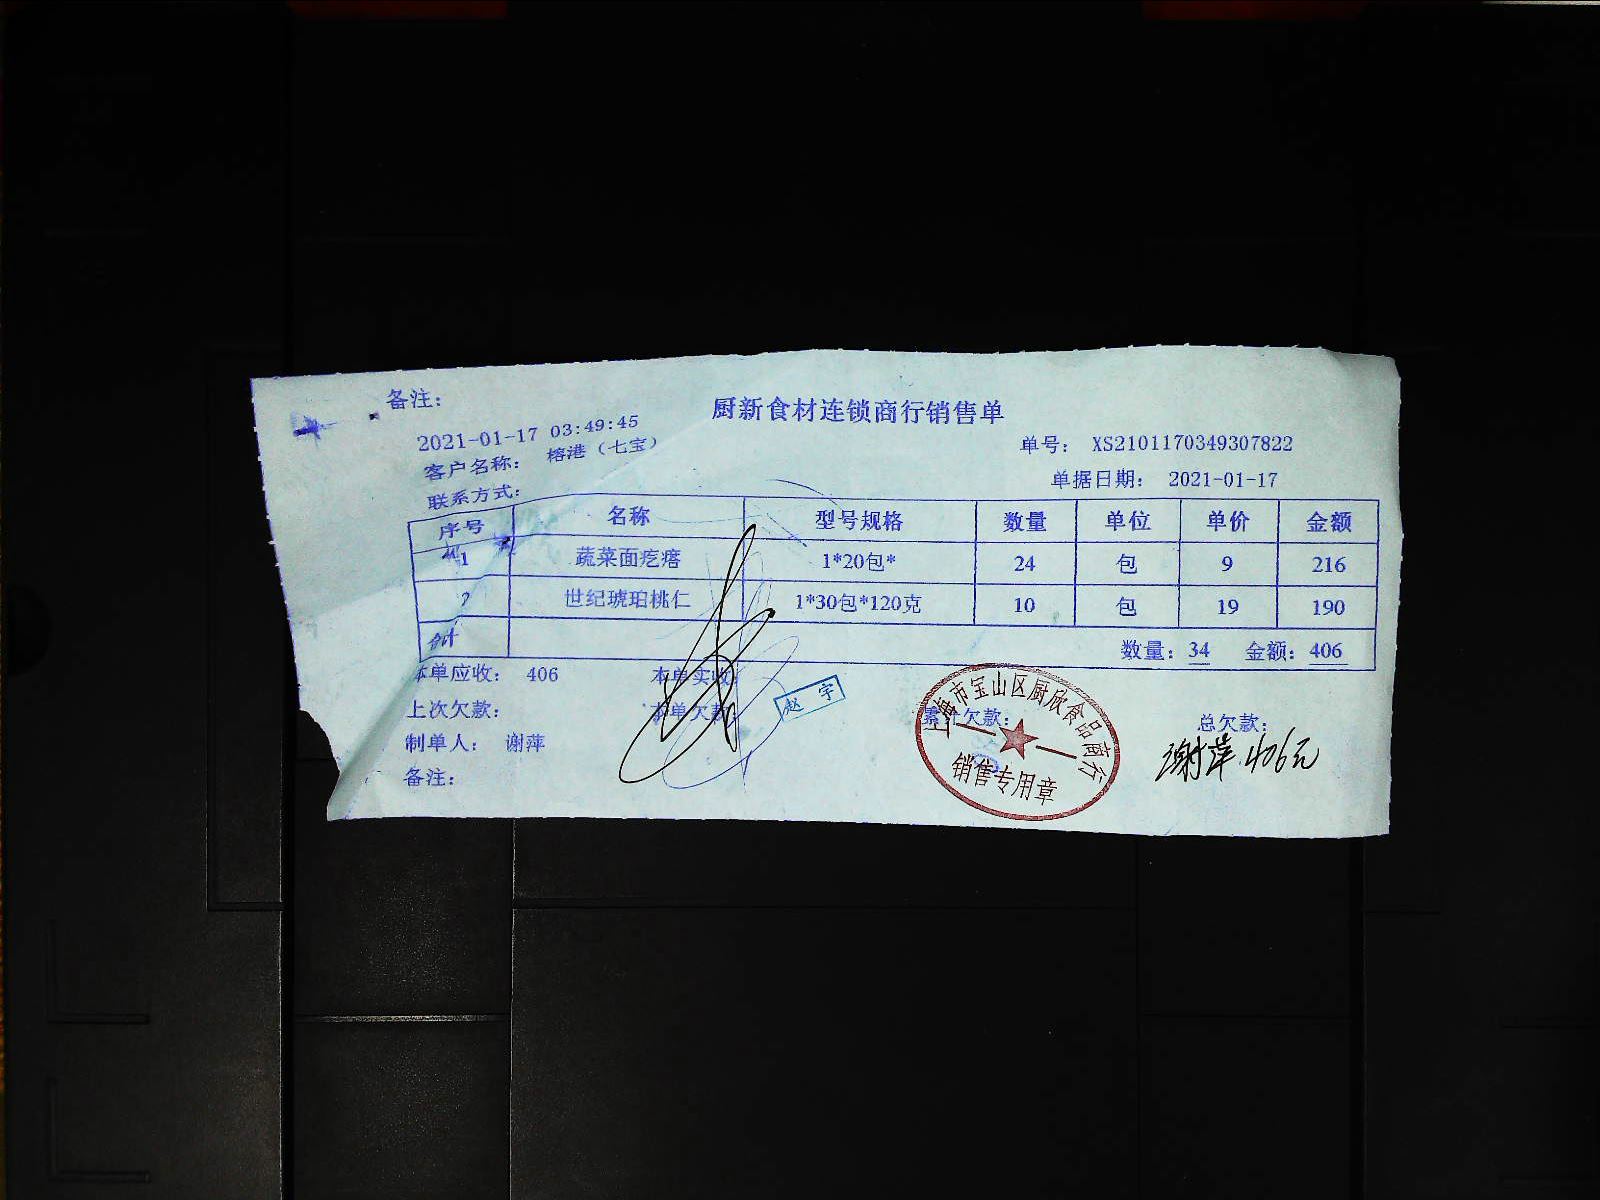 备注：
厨新食材连锁商行销售单
2021-01-17 03:49:45
单号： XS2101170349307822
客户名称： 榕港（七宝）
单据日期： 2021-01-17
联系方式：
序号 名称 型号规格 数量 单位 单价 金额
1 蔬菜面疙瘩 1*20包* 24 包 9 216
2 世纪琥珀桃仁 1*30包*120克 10 包 19 190
合计 数量：34 金额：406
本单应收： 406 本单实收：
上次欠款： 本单欠款： 累计欠款： 总欠款：
赵宇
制单人： 谢萍
谢萍.406元
备注：
上海市宝山区厨欣食品商行
销售专用章